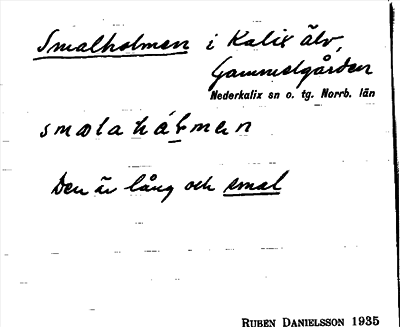 Smalholmen i Kalix älv,
Gammelgården
Nederkalix sn o. tg. Norrb. län
Den är lång och smal
RUBEN DANIELSSON 1935